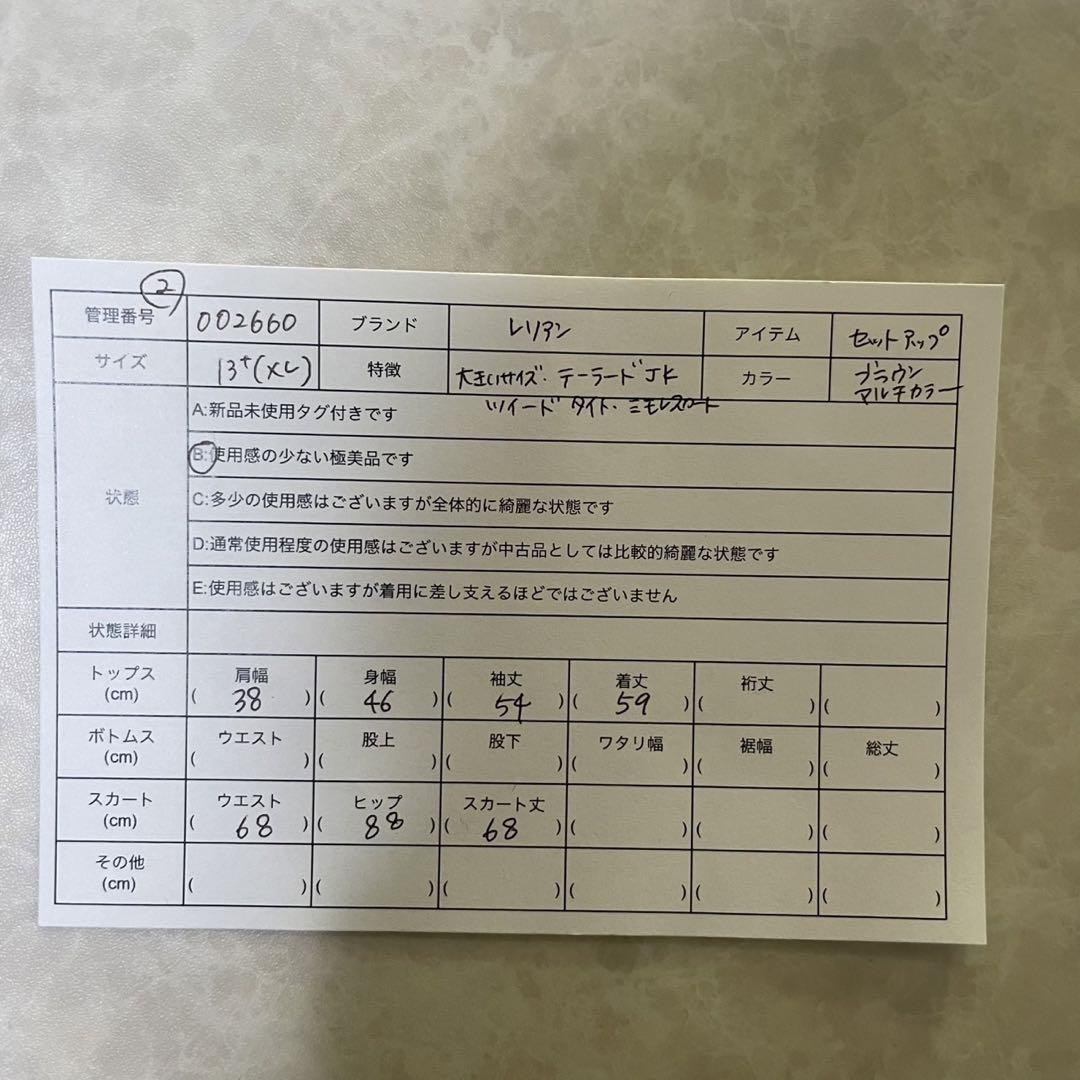 ②
管理番号 002660 ブランド レリアン アイテム セットアップ
サイズ 13+(XL) 特徴 大きいサイズ・テーラードJK カラー ブラウン
マルチカラー
ツイード タイト・ミモレスカート
状態
A:新品未使用タグ付きです
B:使用感の少ない極美品です
C:多少の使用感はございますが全体的に綺麗な状態です
D:通常使用程度の使用感はございますが中古品としては比較的綺麗な状態です
E:使用感はございますが着用に差し支えるほどではございません
状態詳細
トップス 肩幅 身幅 袖丈 着丈 裄丈
(cm) (38) (46) (54) (59) ( ) ( )
ボトムス ウエスト 股上 股下 ワタリ幅 裾幅 総丈
(cm) ( ) ( ) ( ) ( ) ( ) ( )
スカート ウエスト ヒップ スカート丈
(cm) (68) (88) (68) ( ) ( ) ( )
その他
(cm) ( ) ( ) ( ) ( ) ( ) ( )